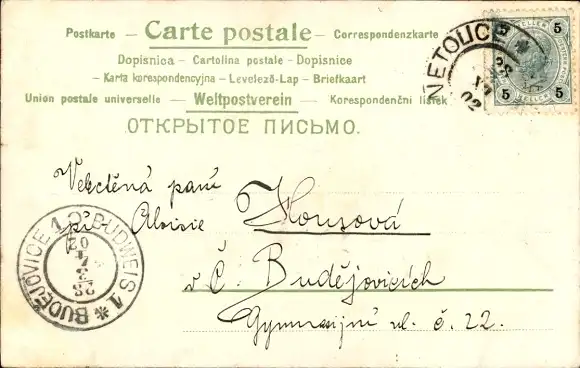 Postkarte — Carte postale — Correspondenzkarte
Dopisnica — Cartolina postale - Dopisnice
— Karta korespondencyjna — Levelező-Lap — Briefkaart
Union postale universelle — Weltpostverein — Korespondenční lístek
ОТКРЫТОЕ ПИСЬМО.
5 5
HELLER HELLER
5 5
NETOLICE *
28
XII
02
Velectěná paní
pí Aloisie Housová
v Č. Budějovicích
Gymnasijní ul. č. 22.
BUDĚJOVICE 1 * BUDWEIS 1 *
02
28